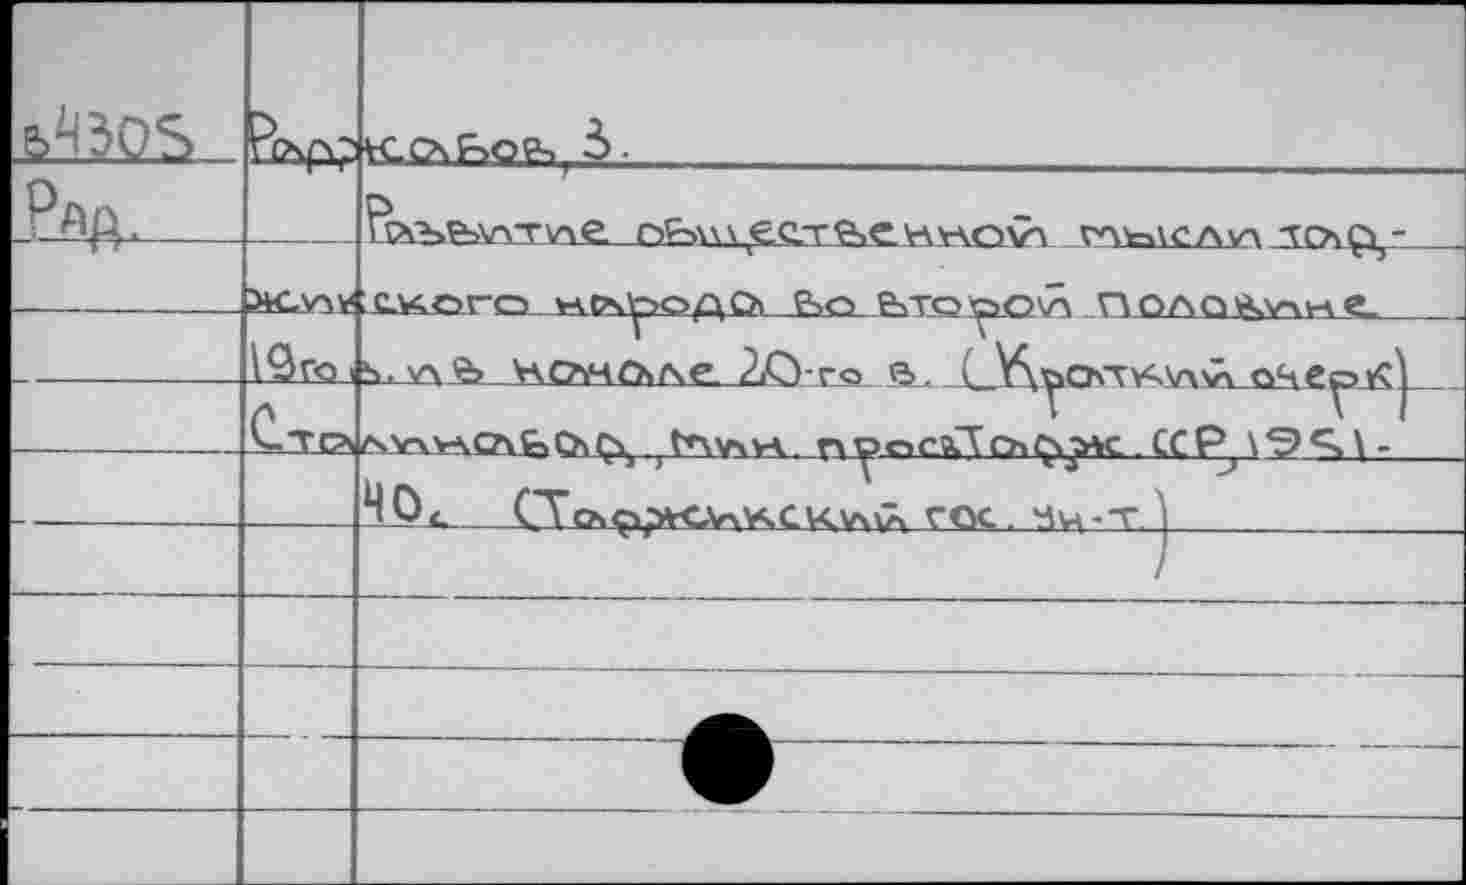 в4305 Раджабов, З.
Рад. Развитие общественной мысли тад-
жикского народа во второй половине
19го в. и в начале 20-го в. (Краткий очерк)
Сталинабад, Мин. просв.Тадж. ССР, 1951-
40с (Таджикский гос. Ун-т)